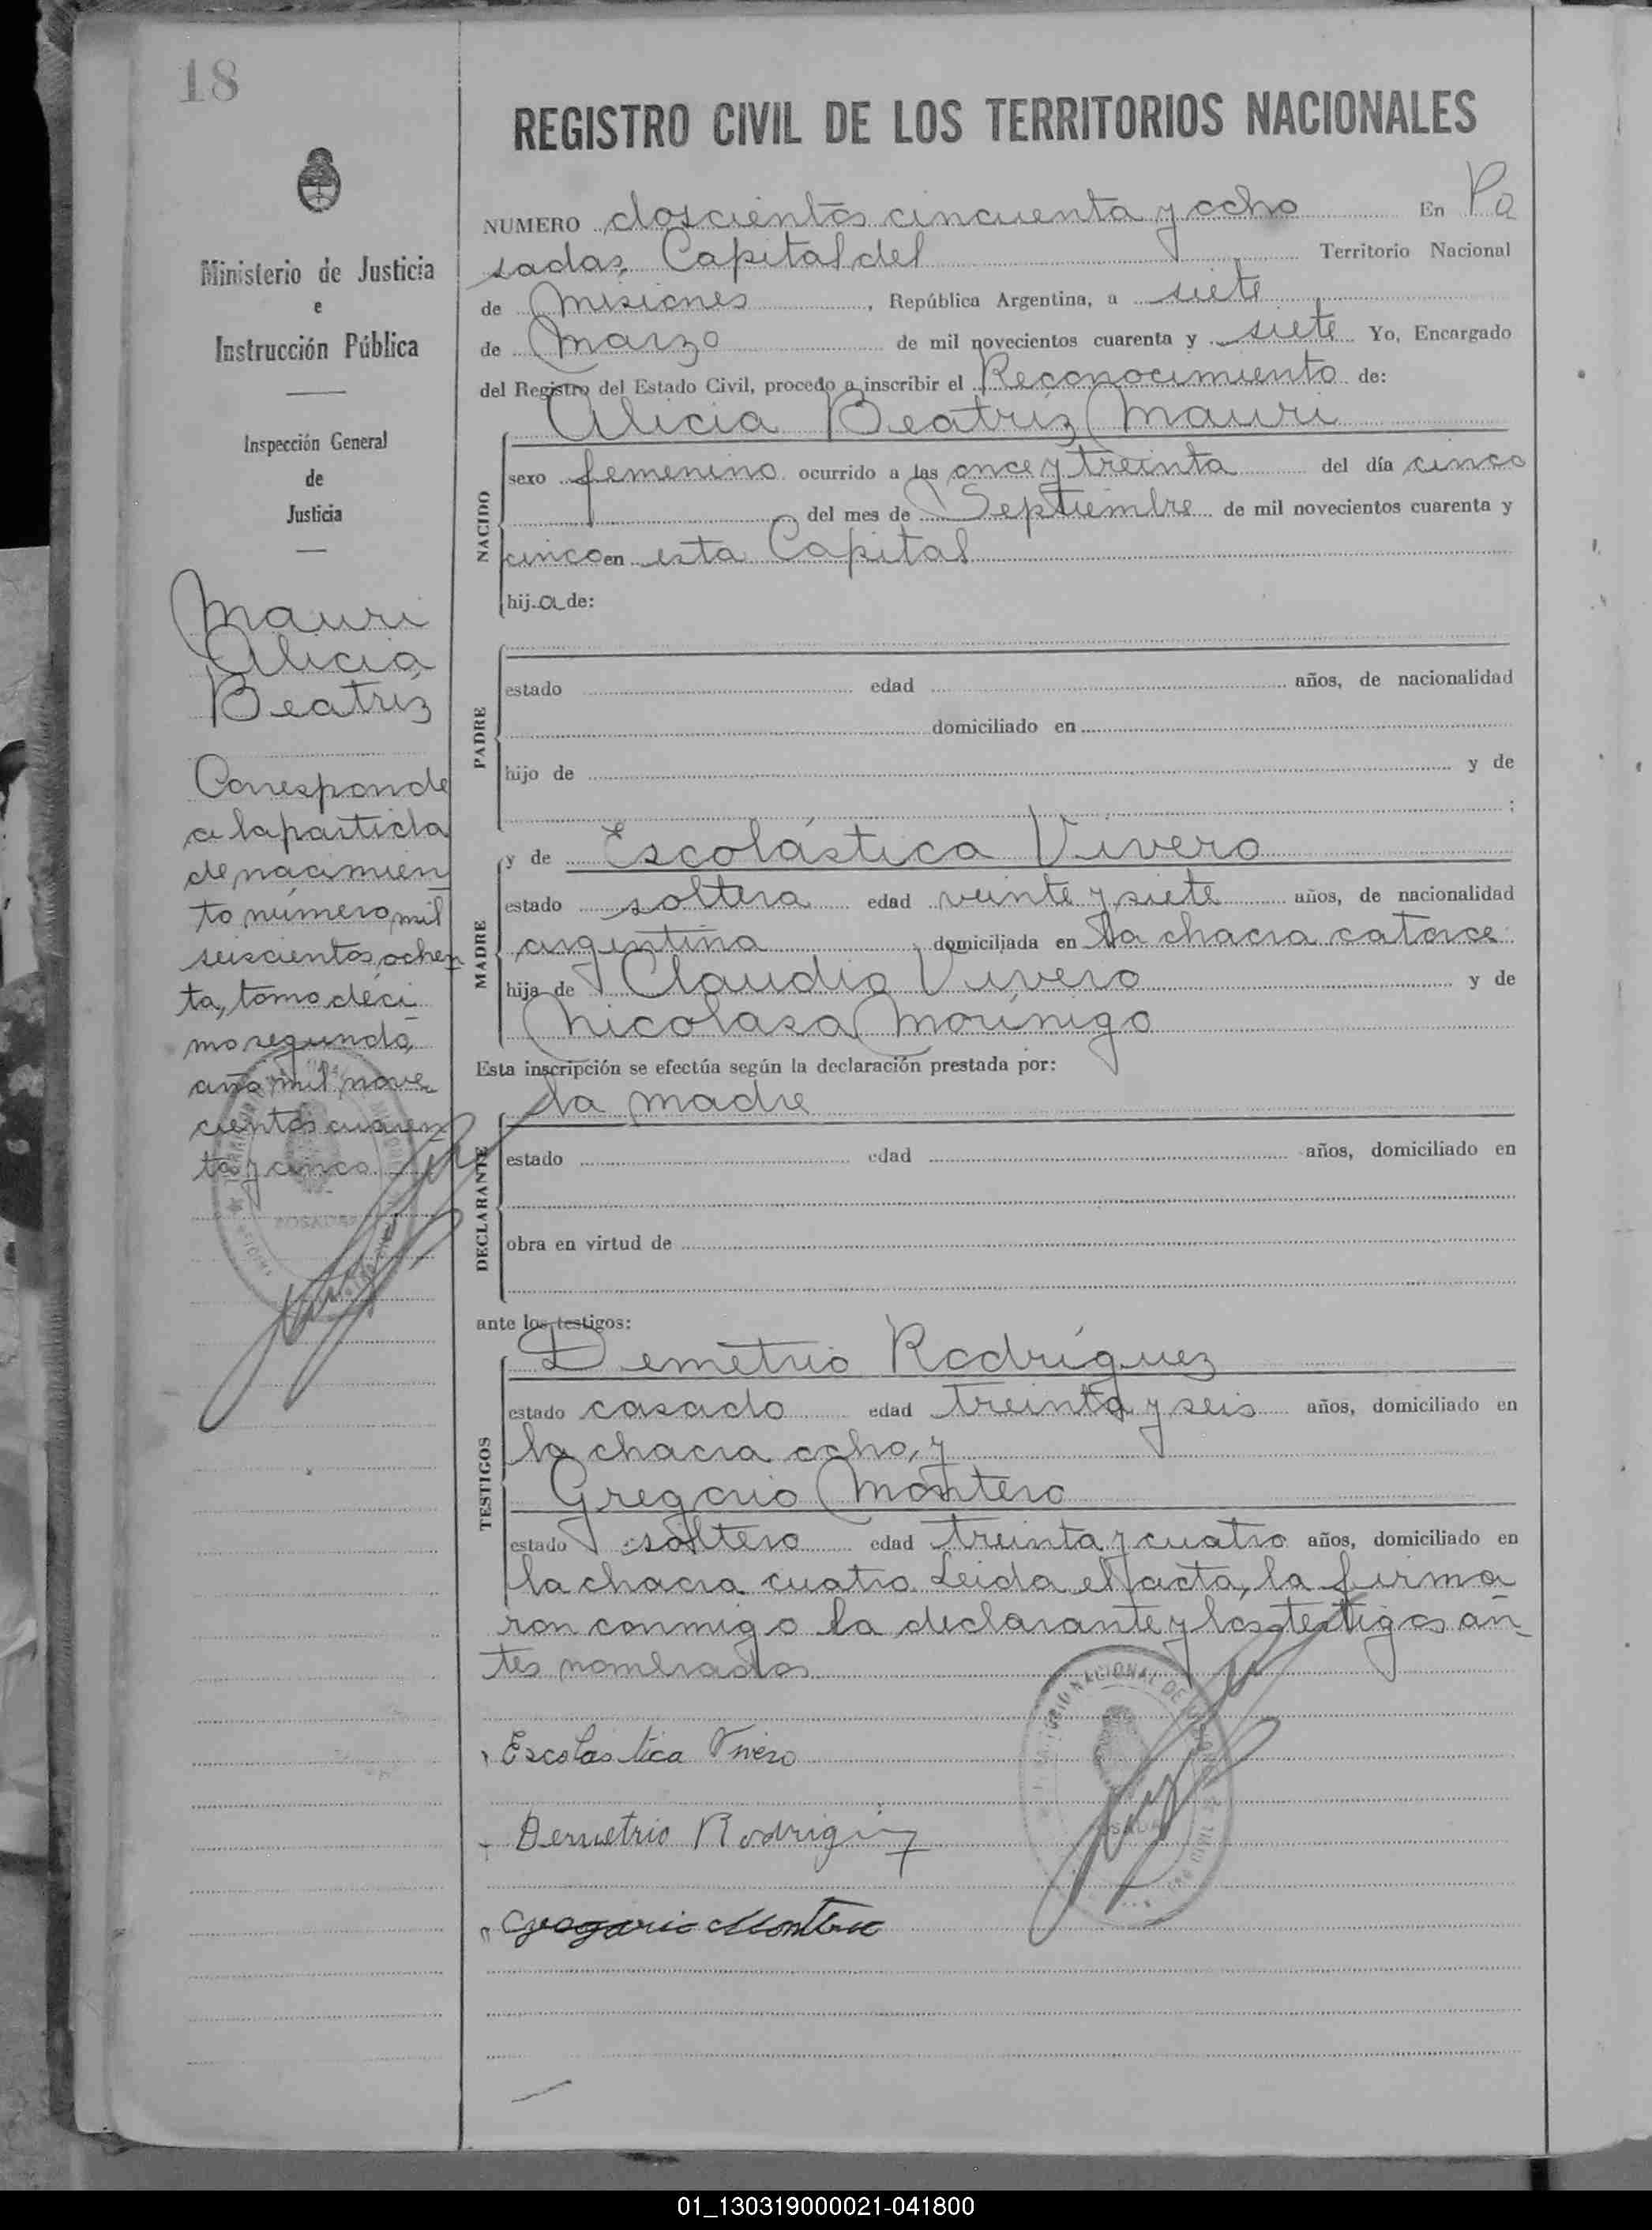 18
REGISTRO CIVIL DE LOS TERRITORIOS NACIONALES
Ministerio de Justicia
e
Instrucción Pública
Inspección General
de
Justicia
Mauri
Alicia
Beatriz
Corresponde
a la partida
de nacimien
to número mil
seiscientos ochen
ta, tomo déci
mo segundo,
año mil nove
cientos cuaren
ta y cinco
NUMERO doscientos cincuenta y ocho En Po
sadas, Capital del Territorio Nacional
de Misiones, República Argentina, a siete
de Marzo de mil novecientos cuarenta y siete Yo, Encargado
del Registro del Estado Civil, procedo a inscribir el Reconocimiento de:
Alicia Beatriz Mauri
NACIDO
sexo femenino ocurrido a las once y treinta del día cinco
del mes de Septiembre de mil novecientos cuarenta y
cinco en esta Capital
hij a de:
PADRE
estado edad años, de nacionalidad
domiciliado en
hijo de y de
;
MADRE
y de Escolástica Vivero
estado soltera edad veinte y siete años, de nacionalidad
argentina, domiciliada en la chacra catorce
hija de Claudio Vivero y de
Nicolasa Morínigo
Esta inscripción se efectúa según la declaración prestada por:
la madre
DECLARANTE
estado edad años, domiciliado en
obra en virtud de
ante los testigos:
TESTIGOS
Demetrio Rodríguez
estado casado edad treinta y seis años, domiciliado en
la chacra ocho, y
Gregorio Montero
estado soltero edad treinta y cuatro años, domiciliado en
la chacra cuatro Leida el acta, la firma
ron conmigo la declarante y los testigos an_
tes nombrados
Escolastica Vivero
Demetrio Rodriguez
Gregorio Montero
01_130319000021-041800